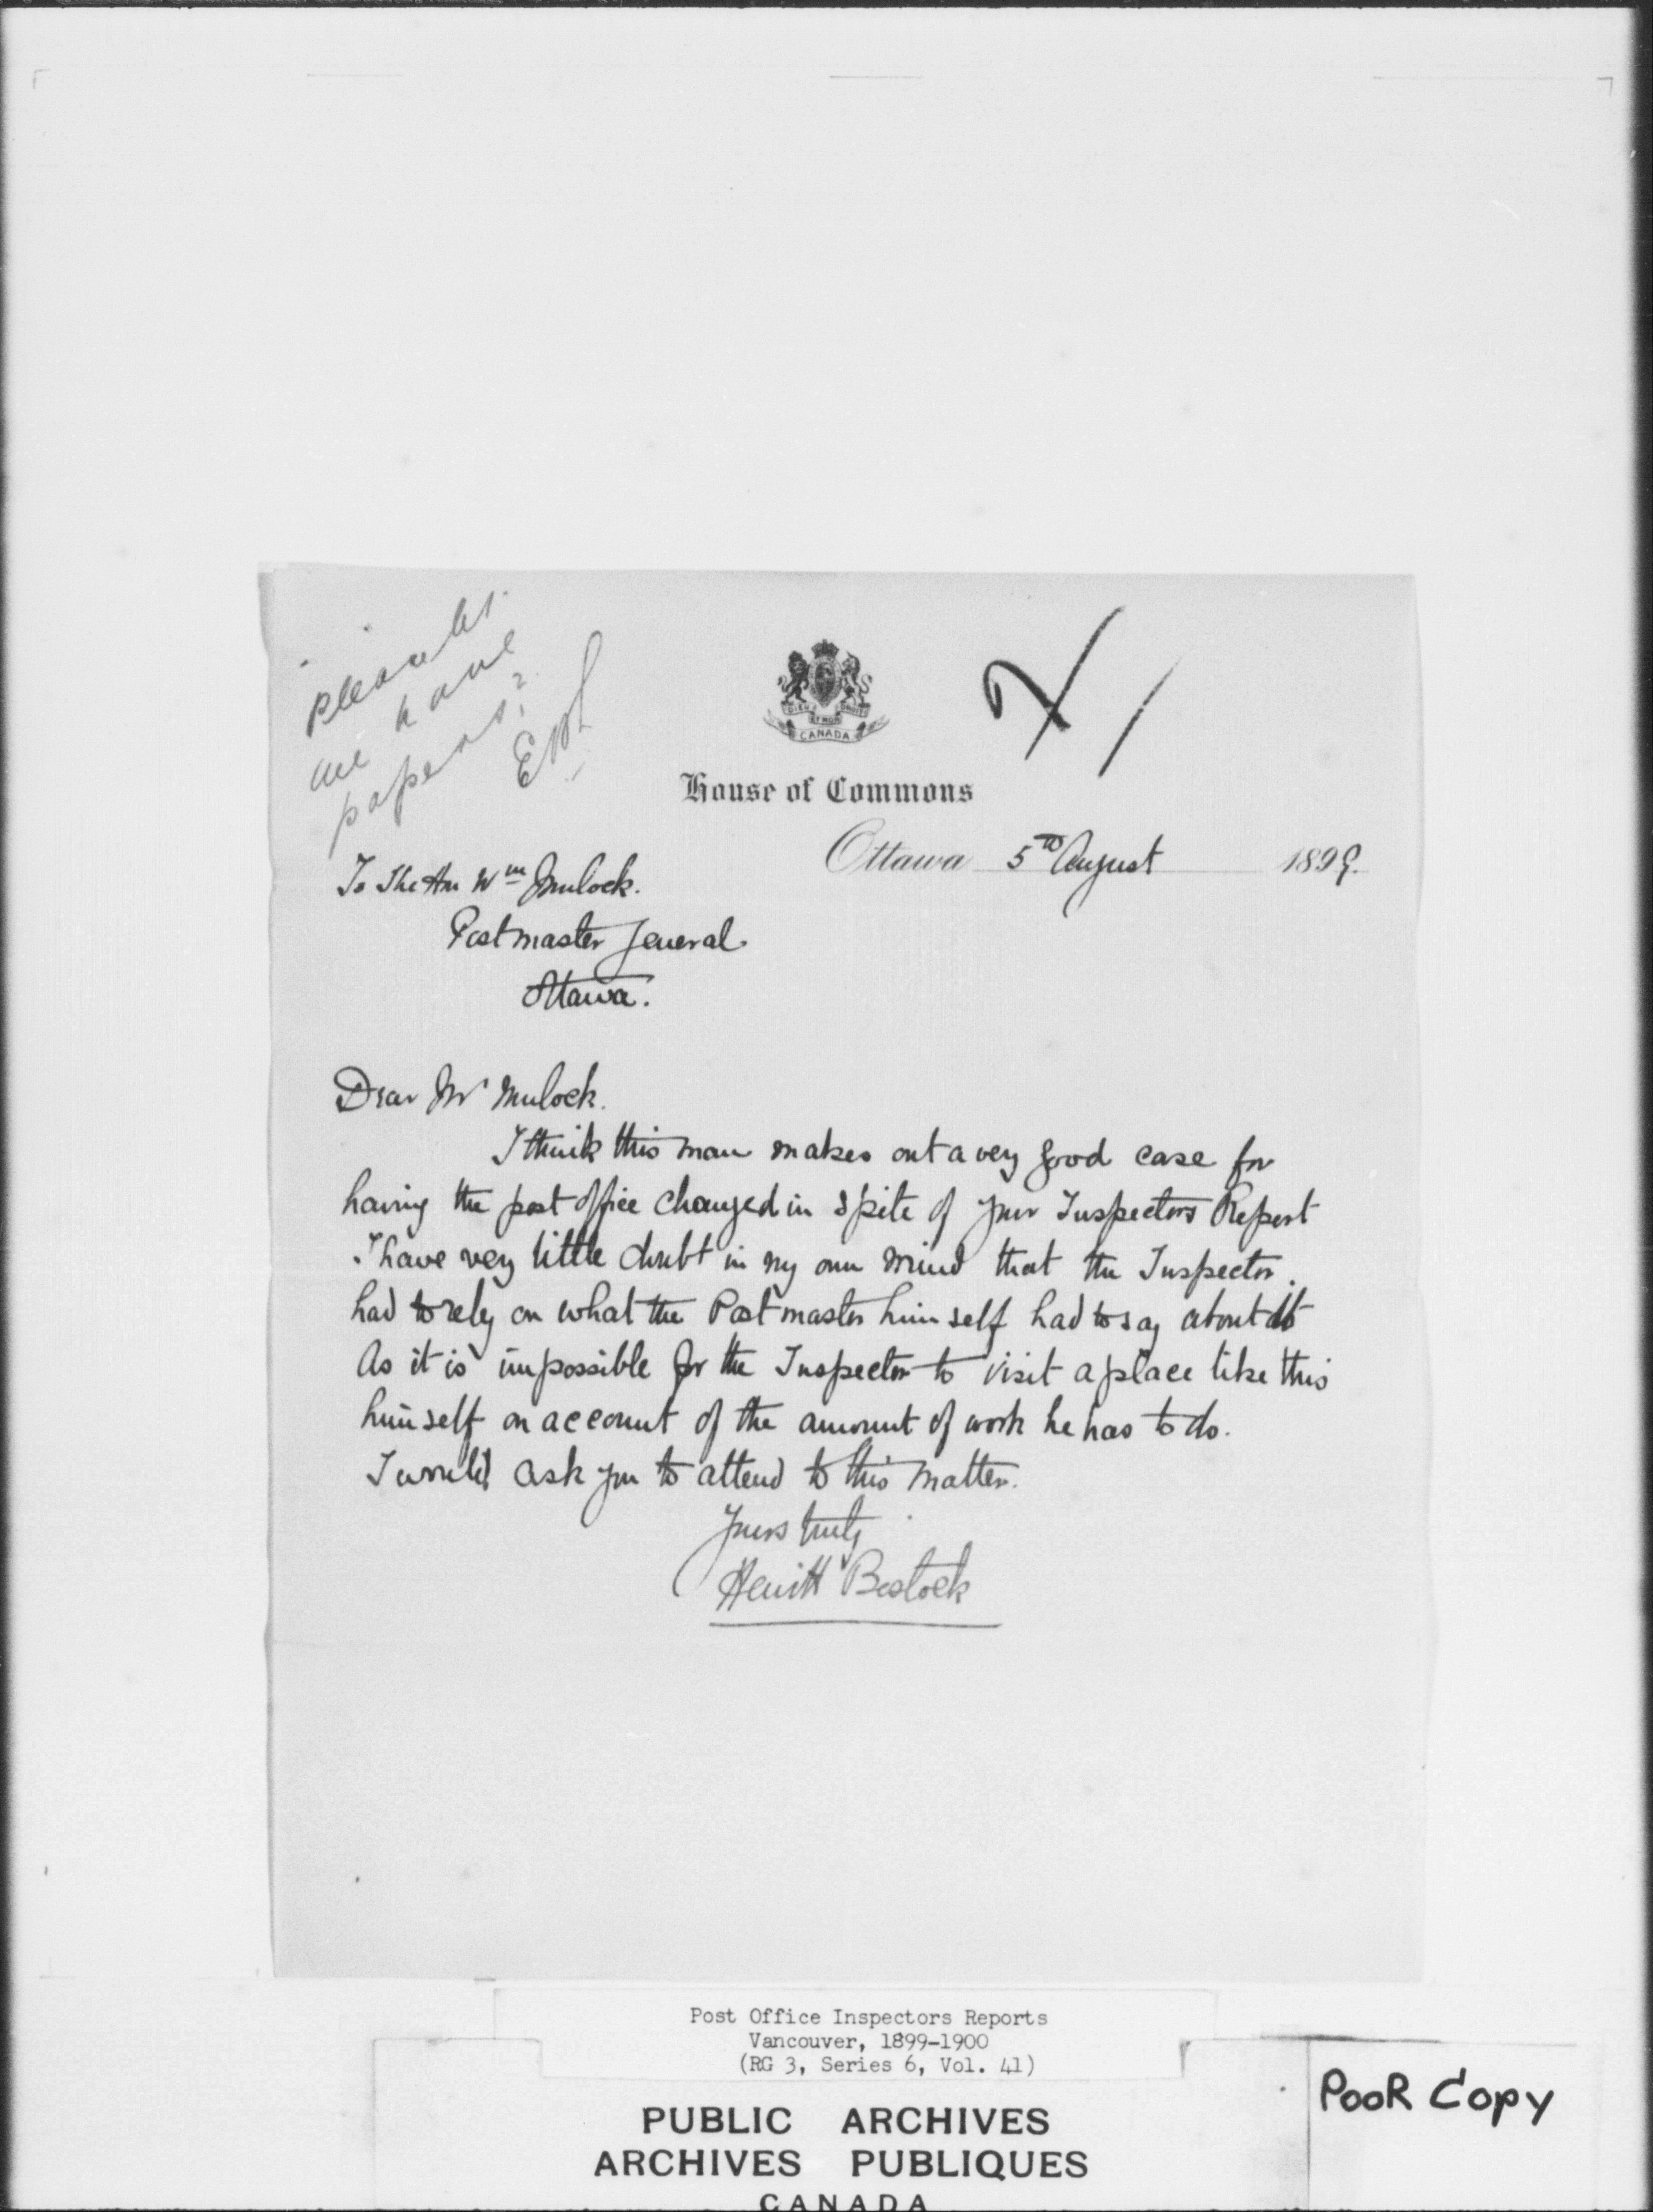 Please let
me have
papers?
DIEU ET MON DROIT
CANADA
House of Commons
Ottawa 5th August 1899.
To The Hon Wm Mulock.
Postmaster General
Ottawa.
Dear Mr Mulock.
I think this man makes out a very good case for
having the post office changed in spite of your Inspectors Report
I have very little doubt in my own mind that the Inspector
had to rely on what the Postmaster himself had to say about it
As it is impossible for the Inspector to visit a place like this
himself on account of the amount of work he has to do.
I would ask you to attend to this matter.
Yours truly
Hewitt Bostock
Post Office Inspectors Reports
Vancouver, 1899-1900
(RG 3, Series 6, Vol. 41)
POOR COPY
PUBLIC ARCHIVES
ARCHIVES PUBLIQUES
CANADA